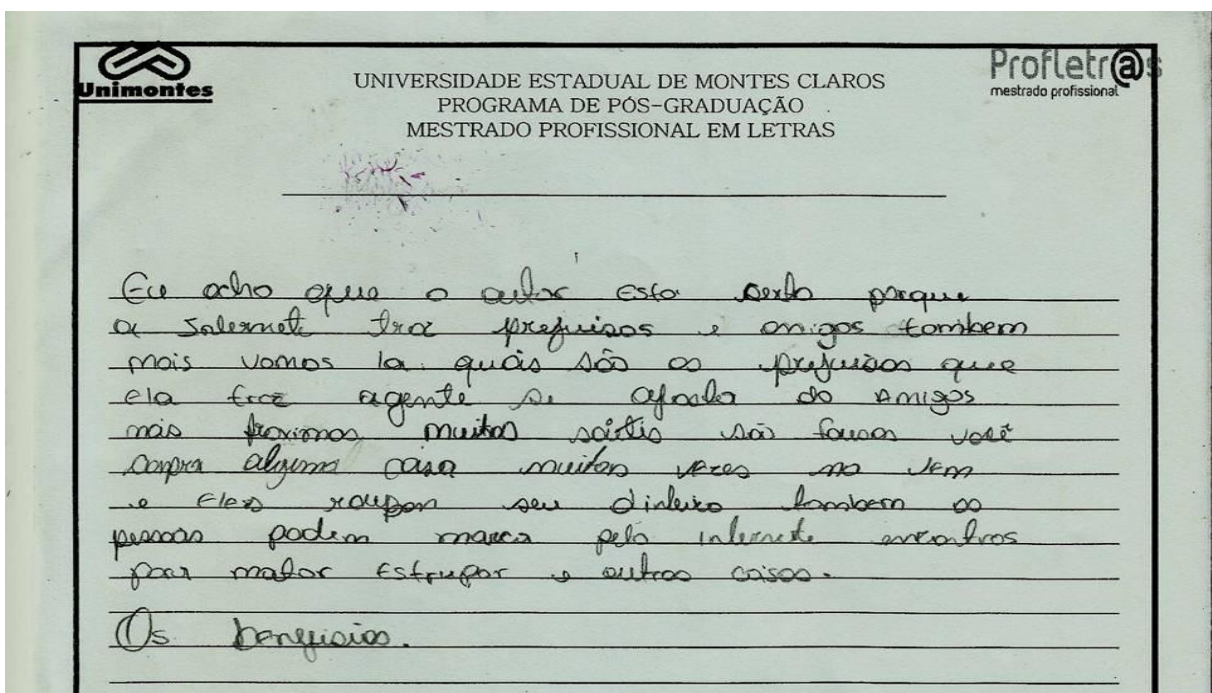 Unimontes
UNIVERSIDADE ESTADUAL DE MONTES CLAROS
PROGRAMA DE PÓS-GRADUAÇÃO
MESTRADO PROFISSIONAL EM LETRAS
Profletr@s
mestrado profissional
Eu acho que o autor Esta serto porque
a Internet traz prejuisos e amigos tambem
mais vamos la quais são os prejuisos que
ela traz agente se afasta do Amigos
mais proximos muitos são você
compra alguma muitas vezes no vem
e Eles seu dinheiro tambem as
pessoas podem marca pela internete encontros
para matar Estrupar e outras coisas.
Os benefisios.